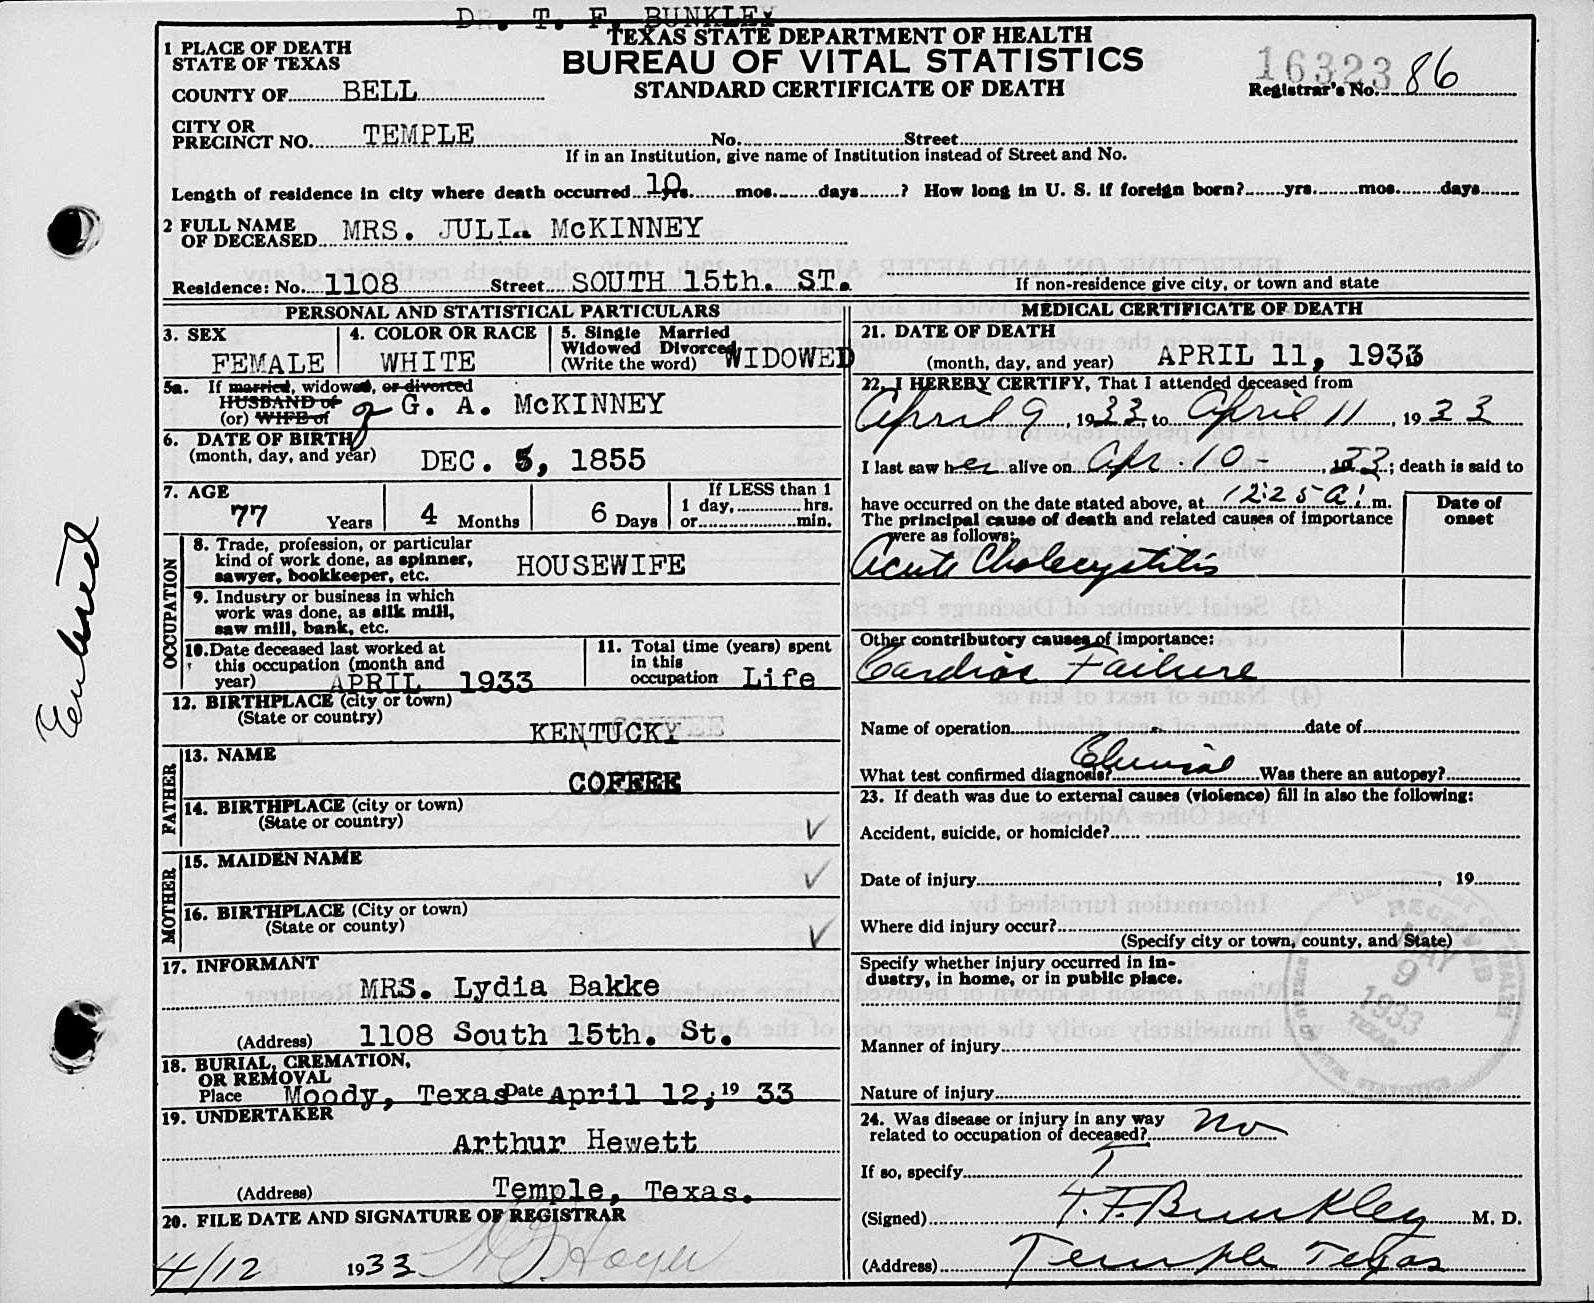 DR. T. F. BUNKLEY
TEXAS STATE DEPARTMENT OF HEALTH
BUREAU OF VITAL STATISTICS
STANDARD CERTIFICATE OF DEATH
16323
Registrar's No. 86
1 PLACE OF DEATH
STATE OF TEXAS
COUNTY OF BELL
CITY OR
PRECINCT NO. TEMPLE No. Street
If in an Institution, give name of Institution instead of Street and No.
Length of residence in city where death occurred 10 yrs. mos. days ? How long in U. S. if foreign born? yrs. mos. days
2 FULL NAME
OF DECEASED MRS. JULIA McKINNEY
Residence: No. 1108 Street SOUTH 15th. ST.
If non-residence give city, or town and state
PERSONAL AND STATISTICAL PARTICULARS
3. SEX 4. COLOR OR RACE 5. Single Married
Widowed Divorced
(Write the word)
FEMALE WHITE WIDOWED
5a. If married, widowed, or divorced
HUSBAND of
(or) WIFE of of G. A. McKINNEY
6. DATE OF BIRTH
(month, day, and year) DEC. 5, 1855
7. AGE If LESS than 1
1 day, hrs.
or min.
77 Years 4 Months 6 Days
OCCUPATION
8. Trade, profession, or particular
kind of work done, as spinner,
sawyer, bookkeeper, etc. HOUSEWIFE
9. Industry or business in which
work was done, as silk mill,
saw mill, bank, etc.
10. Date deceased last worked at
this occupation (month and
year) APRIL 1933
11. Total time (years) spent
in this
occupation Life
12. BIRTHPLACE (city or town)
(State or country) KENTUCKY
FATHER
13. NAME
COFFEE
14. BIRTHPLACE (city or town)
(State or country)
MOTHER
15. MAIDEN NAME
16. BIRTHPLACE (City or town)
(State or county)
17. INFORMANT
MRS. Lydia Bakke
(Address) 1108 South 15th. St.
18. BURIAL, CREMATION,
OR REMOVAL
Place Moody, Texas Date April 12, 19 33
19. UNDERTAKER
Arthur Hewett
(Address) Temple, Texas.
20. FILE DATE AND SIGNATURE OF REGISTRAR
4/12 1933
MEDICAL CERTIFICATE OF DEATH
21. DATE OF DEATH
(month, day, and year) APRIL 11, 1933
22. I HEREBY CERTIFY, That I attended deceased from
April 9, 1933, to April 11, 1933
I last saw her alive on Apr. 10, 1933; death is said to
have occurred on the date stated above, at 12:25 a. m.
The principal cause of death and related causes of importance
were as follows:
Date of
onset
Acute Cholecystitis
Other contributory causes of importance:
Cardiac Failure
Name of operation date of
What test confirmed diagnosis? Clinical Was there an autopsy?
23. If death was due to external causes (violence) fill in also the following:
Accident, suicide, or homicide?
Date of injury , 19
Where did injury occur?
(Specify city or town, county, and State)
Specify whether injury occurred in in-
dustry, in home, or in public place.
Manner of injury
Nature of injury
24. Was disease or injury in any way
related to occupation of deceased? No
If so, specify
(Signed) T. F. Bunkley M. D.
(Address) Temple Texas
RECEIVED
MAY
9
1933
TEXAS